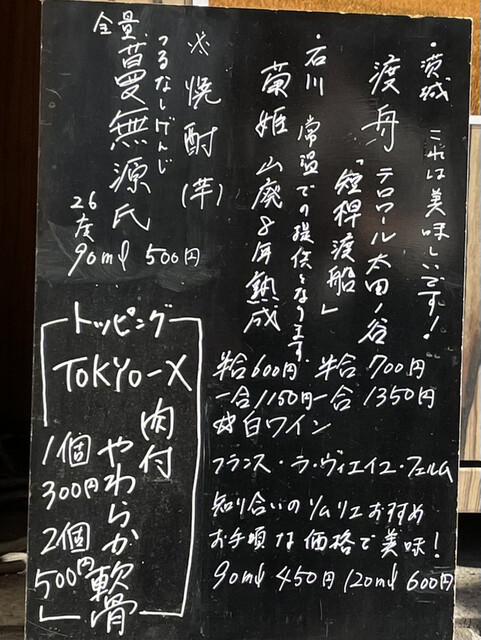 ・茨城 これは美味しいです!
渡舟 テロワール太田ノ谷
「短稈渡船」
・石川 常温での提供となります
菊姫 山廃8年熟成
半合700円
一合1350円
半合600円
一合1150円
※焼酎(芋)
つるなしげんじ
全量蔓無源氏
26度
90ml 500円
☆白ワイン
フランス・ラ・ヴィエイユ・フェルム
知り合いのソムリエおすすめ
お手頃な価格で美味!
90ml 450円 120ml 600円
トッピング
TOKYO-X
肉付
やわらか軟骨
1個
300円
2個
500円